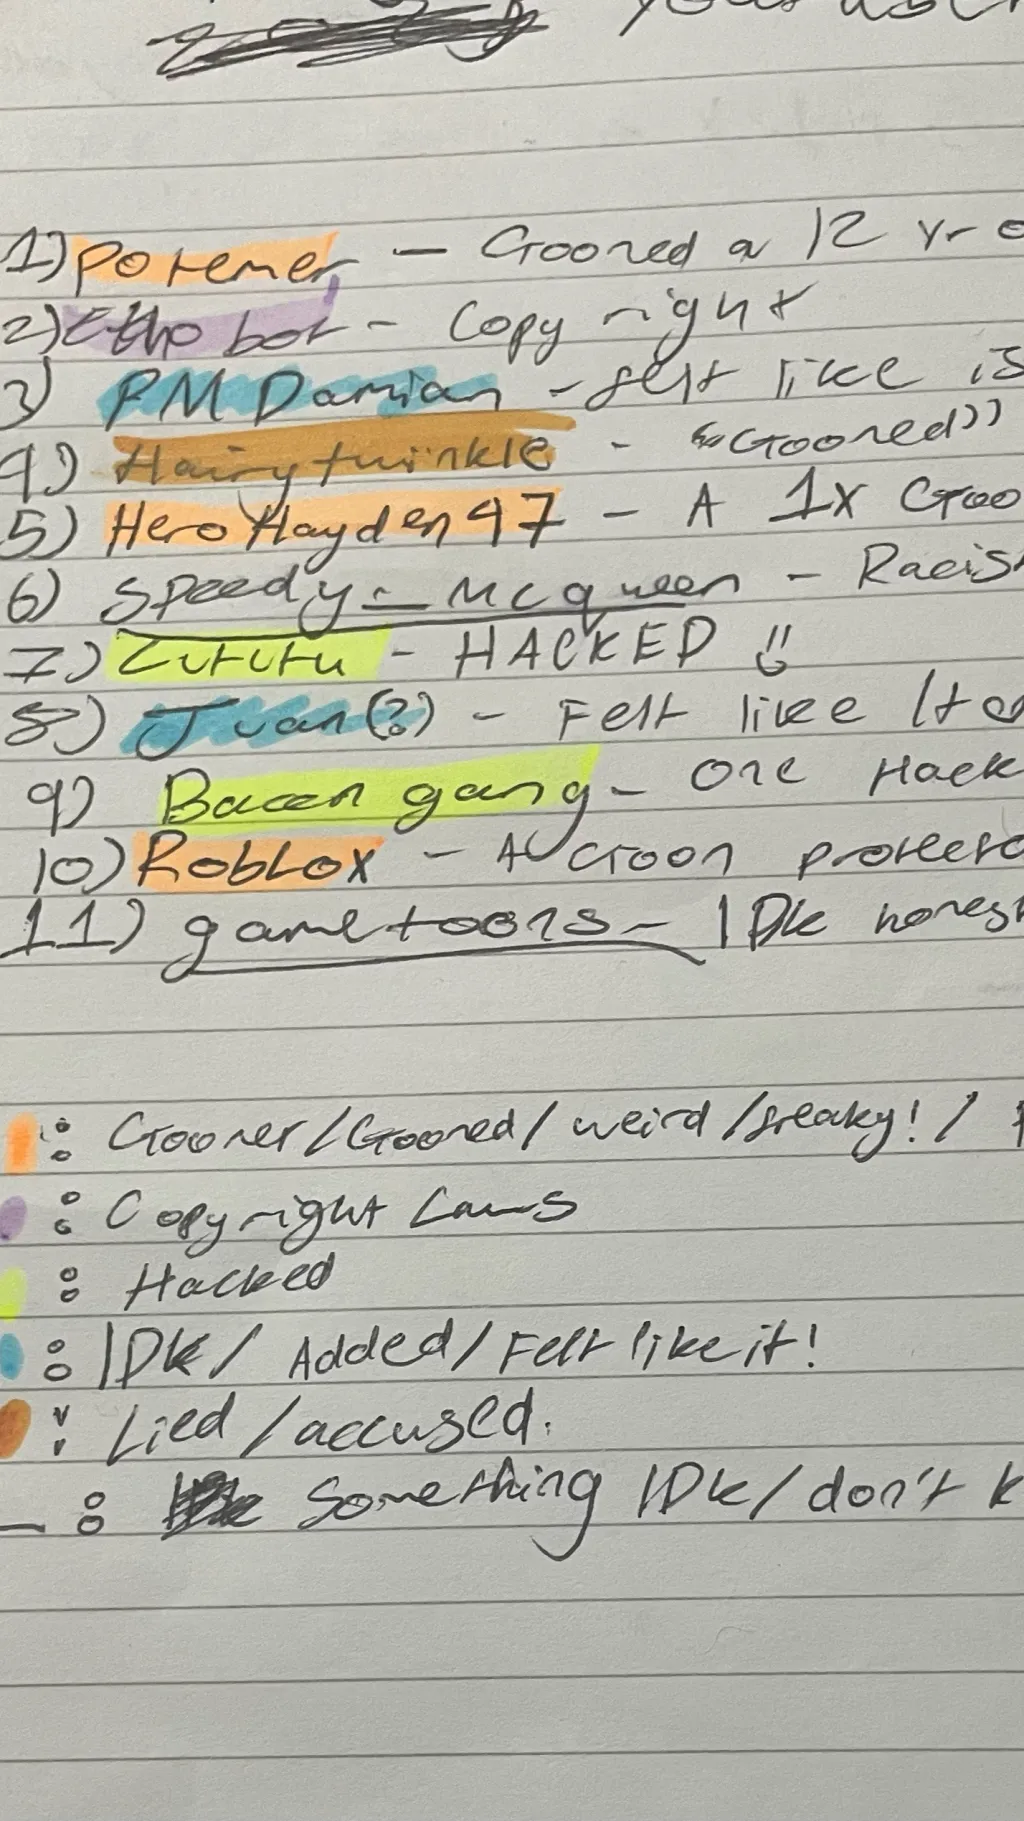 1) Poremer - Gooned a 12 yr o
2) Etho bot - Copyright
3) PM Damian - felt like is
4) Hairytwinkle - "Gooned"
5) HeroHayden97 - A 1x Goo
6) Speedy_Mcqueen - Racis
7) Zututu - HACKED
8) Juan(?) - Felt like It
9) Bacon gang - One Hack
10) Roblox - A Goon protect
11) gametoons - IDk honest
: Gooner/Gooned/ weird /freaky! /
: Copyright Laws
: Hacked
: IDk/ Added/ Felt like it!
: Lied /accused.
_ : Something IDk/ don't k